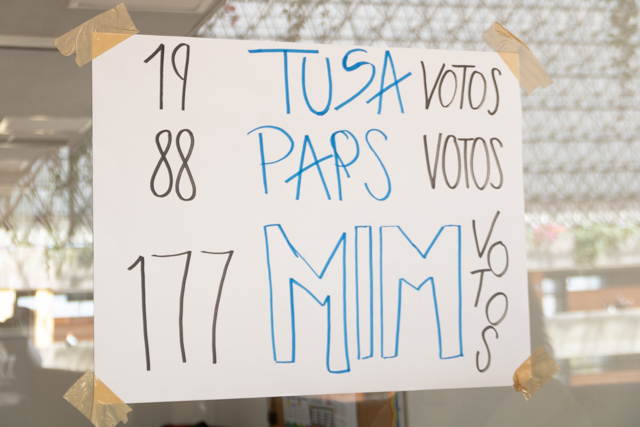 19 TUSA VOTOS
88 PAPS VOTOS
177 MIM VOTOS